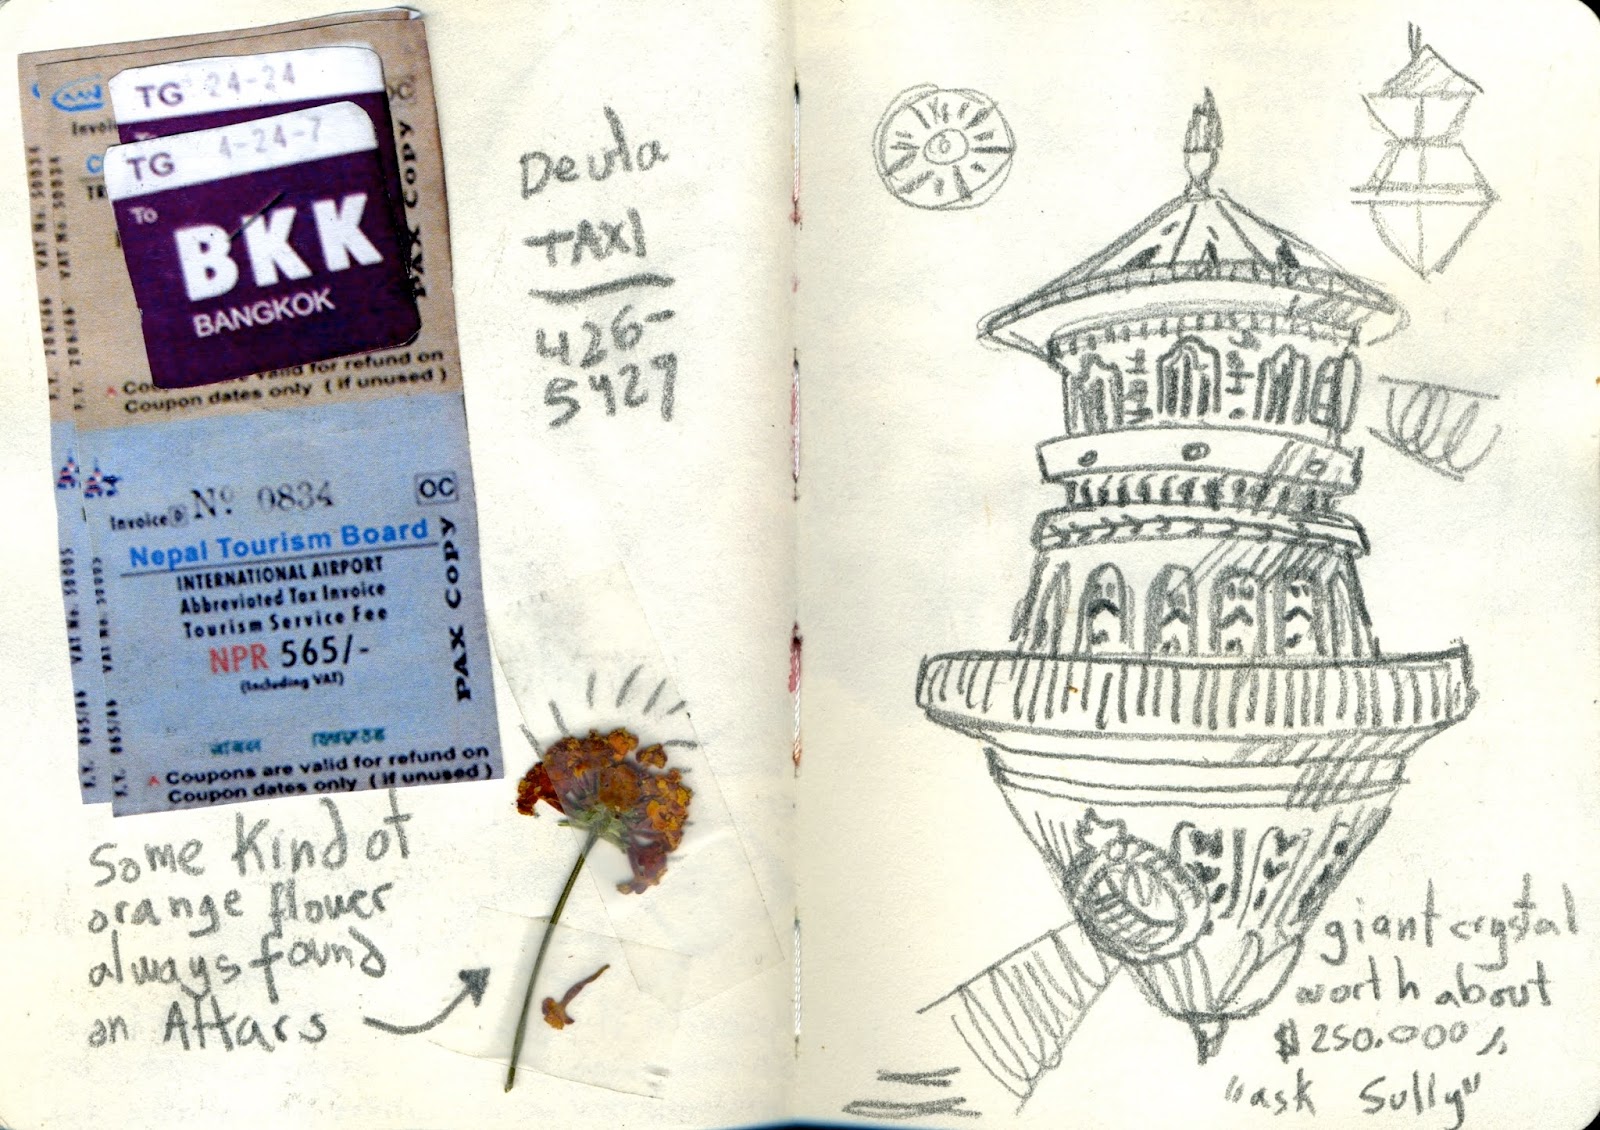 TG 24-24
TG 4-24-7
To
BKK
BANGKOK
OC
PAX COPY
Coupon dates only ( if unused )
Invoice Nº 0834
OC
Nepal Tourism Board
INTERNATIONAL AIRPORT
Abbreviated Tax Invoice
Tourism Service Fee
NPR 565/-
(Including VAT)
PAX COPY
Coupons are valid for refund on
Coupon dates only ( if unused )
Some kind of
orange flower
always found
on Altars
TAXI
426-
5427
giant crystal
worth about
$250.000
"ask Sully"